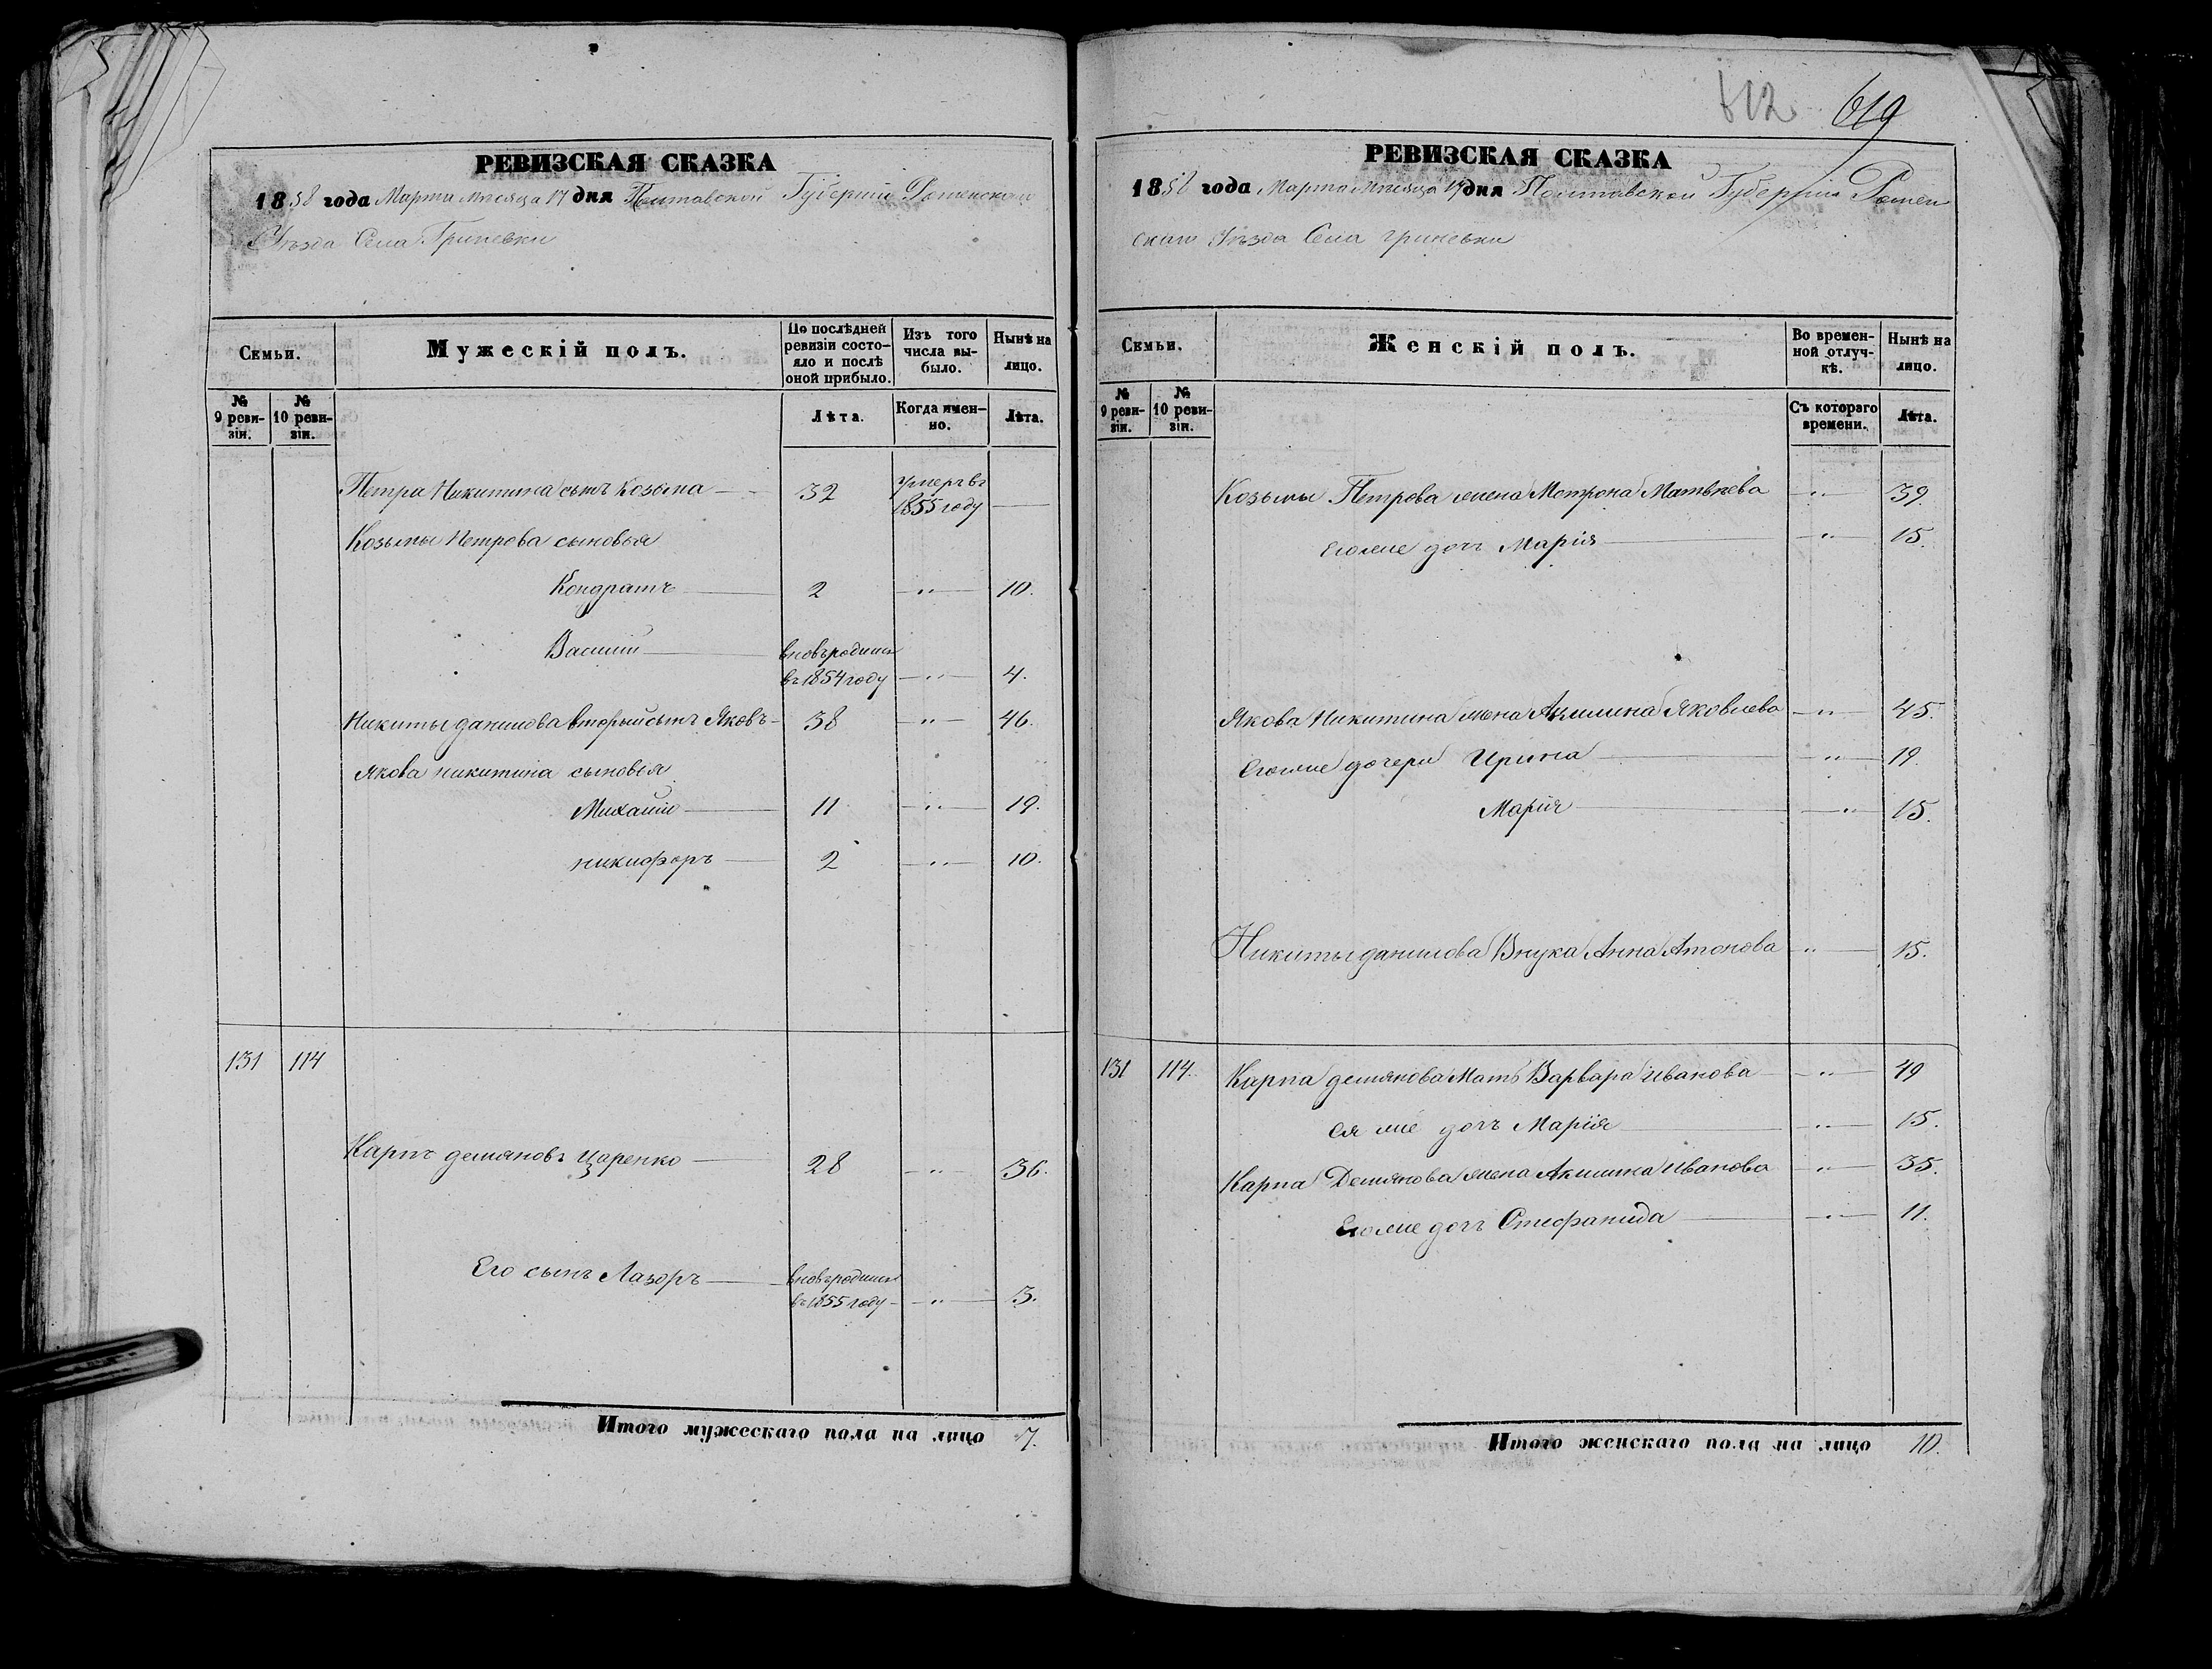 612 619
РЕВИЗСКАЯ СКАЗКА
1858 года Марта месяца 17 дня Полтавской Губернии Роменскаго
Уѣзда Села Гриневки
Семьи.
Мужескій полъ.
По послѣдней ревизіи состояло и послѣ оной прибыло.
Изъ того числа выбыло.
Нынѣ на лицо.
№ 9 ревизіи.
№ 10 ревизіи.
Лѣта.
Когда именно.
Лѣта.
Петра Никитина сынъ Козьма — 32 умеръ въ 1855 году —
Козьмы Петрова сыновья
Кондратъ — 2 — " — 10.
Василий — вновьродился въ 1854 году — " — 4.
Никиты данилова вторый сынъ Яковъ — 38 — " — 46.
Якова никитина сыновья
Михаийло — 11 — " — 19.
никифоръ — 2 — " — 10.
131 114
Карпъ демяновъ Царенко — 28 — " — 36.
Его сынъ Лазоръ — вновьродился въ 1855 году — " — 3.
Итого мужескаго пола на лицо 7.
РЕВИЗСКАЯ СКАЗКА
1858 года Марта месяца 17 дня Полтавской Губернии Ромен
скаго Уѣзда Села гриневки
Семьи.
Женскій полъ.
Во временной отлучкѣ.
Нынѣ на лицо.
№ 9 ревизіи.
№ 10 ревизіи.
Съ котораго времени.
Лѣта.
Козьмы Петрова жена Мотрона Матвѣева — " — 39.
Егоже дочъ Марія — " — 15.
Якова Никитина жена Акилина Яковлева — " — 45.
Егоже дочери Ирина — " — 19
Марія — " — 15.
Никиты данилова Внука Анна Атонова — " — 15.
131 114. Карпа демянова Мать Варвара Иванова — " — 49
Ея же дочъ Марія — " — 15.
Карпа Демянова жена Акилина Иванова — " — 35.
Егоже дочъ Стефанида — " — 11.
Итого женскаго пола на лицо 10.